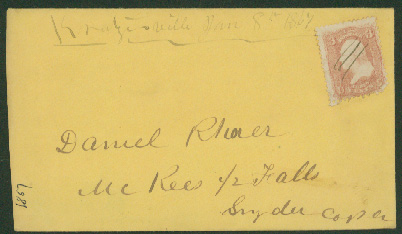 Kratzerville Dec 8th 1867
Daniel Rhoer
McKees 1/2 Falls
Snyder Co Pa
1867